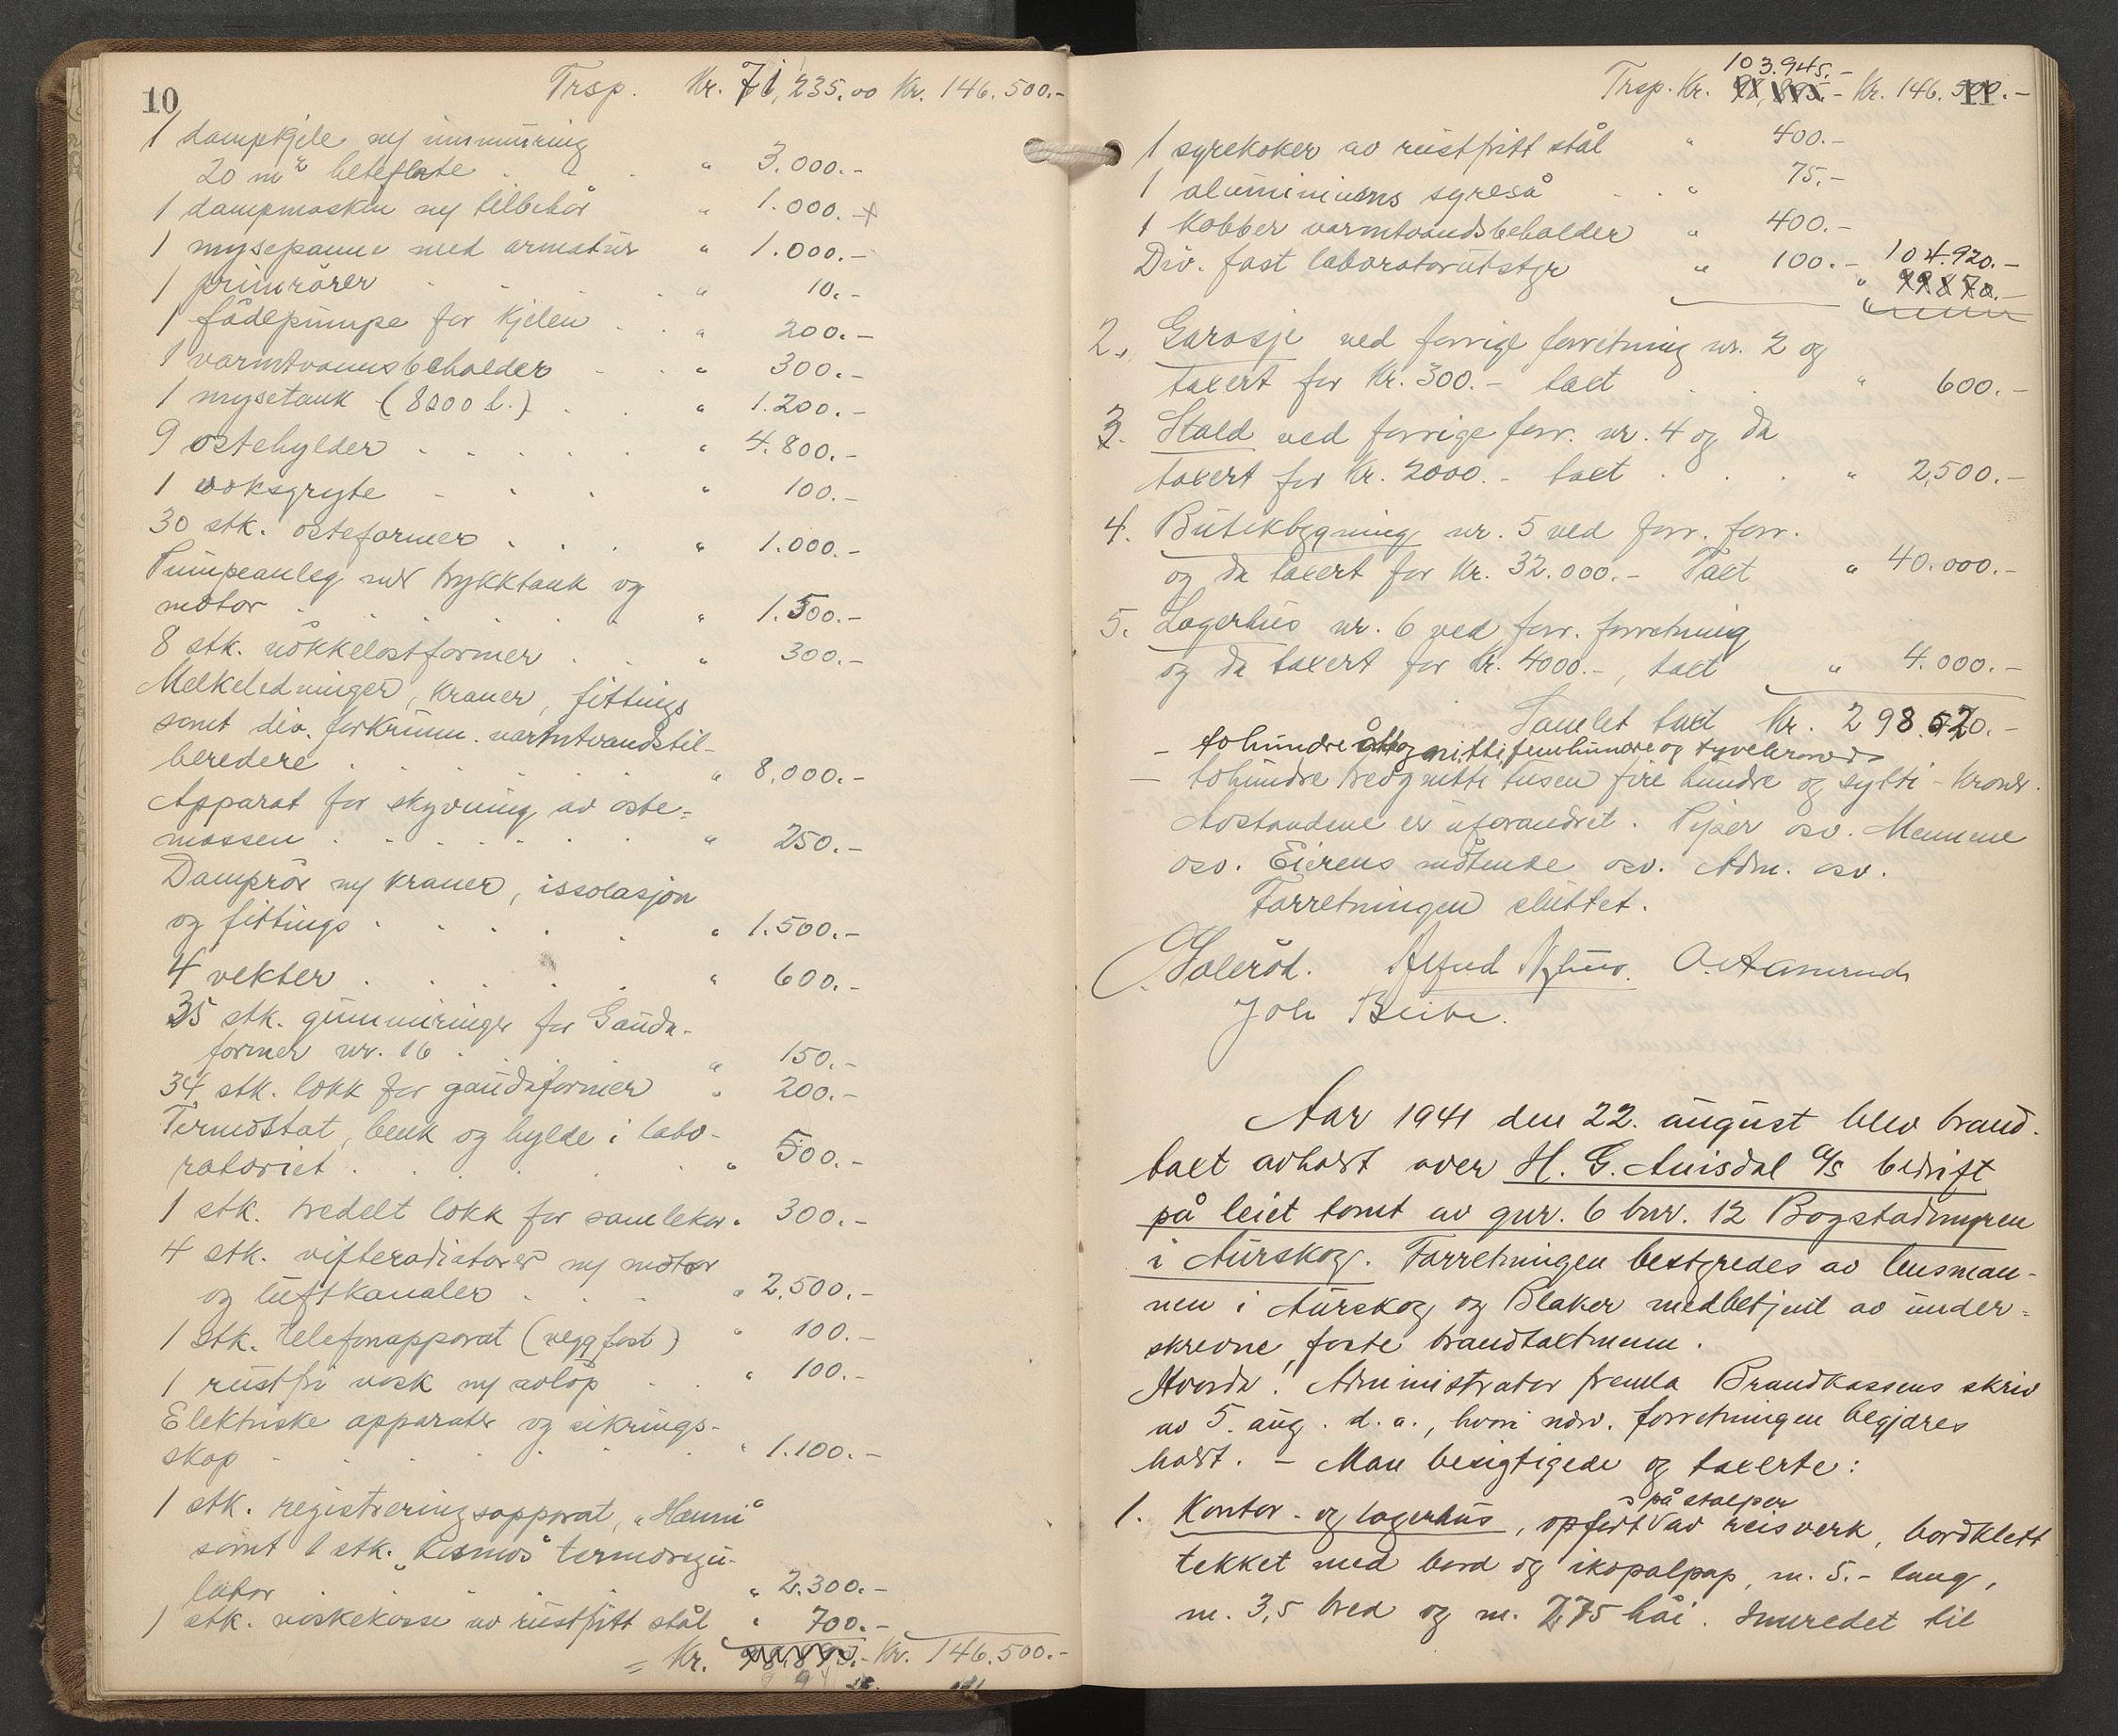 10
Trsp. Kr. 71,235,00 Kr. 146.500.-
1 dampkjele m/ innmuring
20 m² heteflate " 3.000.-
1 dampmaskin m/ tilbehör " 1.000.-
1 mysepanne med armatur " 1.000.-
1 primrörer " 10.-
1 födepumpe for kjelen " 200.-
1 varmtvannsbeholder " 300.-
1 mysetank (8200 l.) " 1.200.-
9 ostehylder " 4.800.-
1 voksgryte " 100.-
30 stk. osteformer " 1.000.-
Pumpeanleg med trykktank og
motor " 1.500.-
8 stk. nökkelostformer " 300.-
Melkeledninger, kraner, fittings
samt div. forkrumm. varmtvandstil-
beredere " 8.000.-
Apparat for skyvning av oste-
massen " 250.-
Damprör m/ kraner, issolasjon
og fittings " 1.500.-
4 vekter " 600.-
35 stk. gummiringer for Gauda-
former nr. 16 " 150.-
34 stk. lokk for gaudaformer " 200.-
Termostat, benk og hylde i labo-
ratoriet " 500.-
1 stk. tredelt lokk for samlekar " 300.-
4 stk. vifteradiatorer m/ motor
og luftkanaler " 2.500.-
1 stk. telefonapparat (veggfast) " 100.-
1 rustfri vask m/ avlöp " 100.-
Elektriske apparater og sikrings-
skap " 1.100.-
1 stk. registreringsapparat, "Hanni"
samt 1 stk. "Kosmos" termoregu-
lator " 2.300.-
1 stk. vaskekasse av rustfritt stål " 700.-
= Kr. 98.895.- Kr. 146.500.-
11
103.945.-
Trsp. Kr. 98,895.- Kr. 146.500.-
1 syrekoker av rustfritt stål " 400.-
1 aluminiums syreså " 75.-
1 kobber varmtvandsbeholder " 400.-
Div. fast laboratorutstyr " 100.- 104.920.-
" 99870.-
2. Garasje ved forrige forretning nr. 2 og
taxert for Kr. 300.- taxt " 600.-
3. Stald ved forrige forr. nr. 4 og da
taxert for Kr. 2000.- taxt " 2,500.-
4. Butikbygning nr. 5 ved forr. forr.
og da taxert for Kr. 32.000.- Taxt " 40.000.-
5. Lagerhus nr. 6 ved forr. forretning
og da taxert for Kr. 4000.-, taxt " 4.000.-
Samlet taxt Kr. 298.520.-
- tohundre åtteognitti femhundre og tyve kroner
- tohundre treognitti tusen fire hundre og sytti - kroner.
Avstandene er uforandret. Piper osv. Mennene
osv. Eierens mötende osv. Adm. osv.
Forretningen sluttet.
Joh
Aar 1941 den 22. august blev brand-
taxt avholdt over H. G. Auisdal A/S bedrift
på leiet tomt av gnr. 6 bnr. 12 Bogstadmyren
i Aurskog. Forretningen bestyredes av lensman-
nen i Aurskog og Blaker medbetjent av under-
skrevne, faste brandtaxtmenn.
Hvorda! Administrator fremla Brandkassens skriv
av 5. aug. d. a., hvori ndv. forretningen begjæres
holdt. - Man besigtigede og taxerte:
på stolper
1. Kontor- og lagerhus, opfört av reisverk, bordklett
tekket med bord og ikopalpap, m. 5.- lang,
m. 3,5 bred og m. 2,75 höi. Innredet til